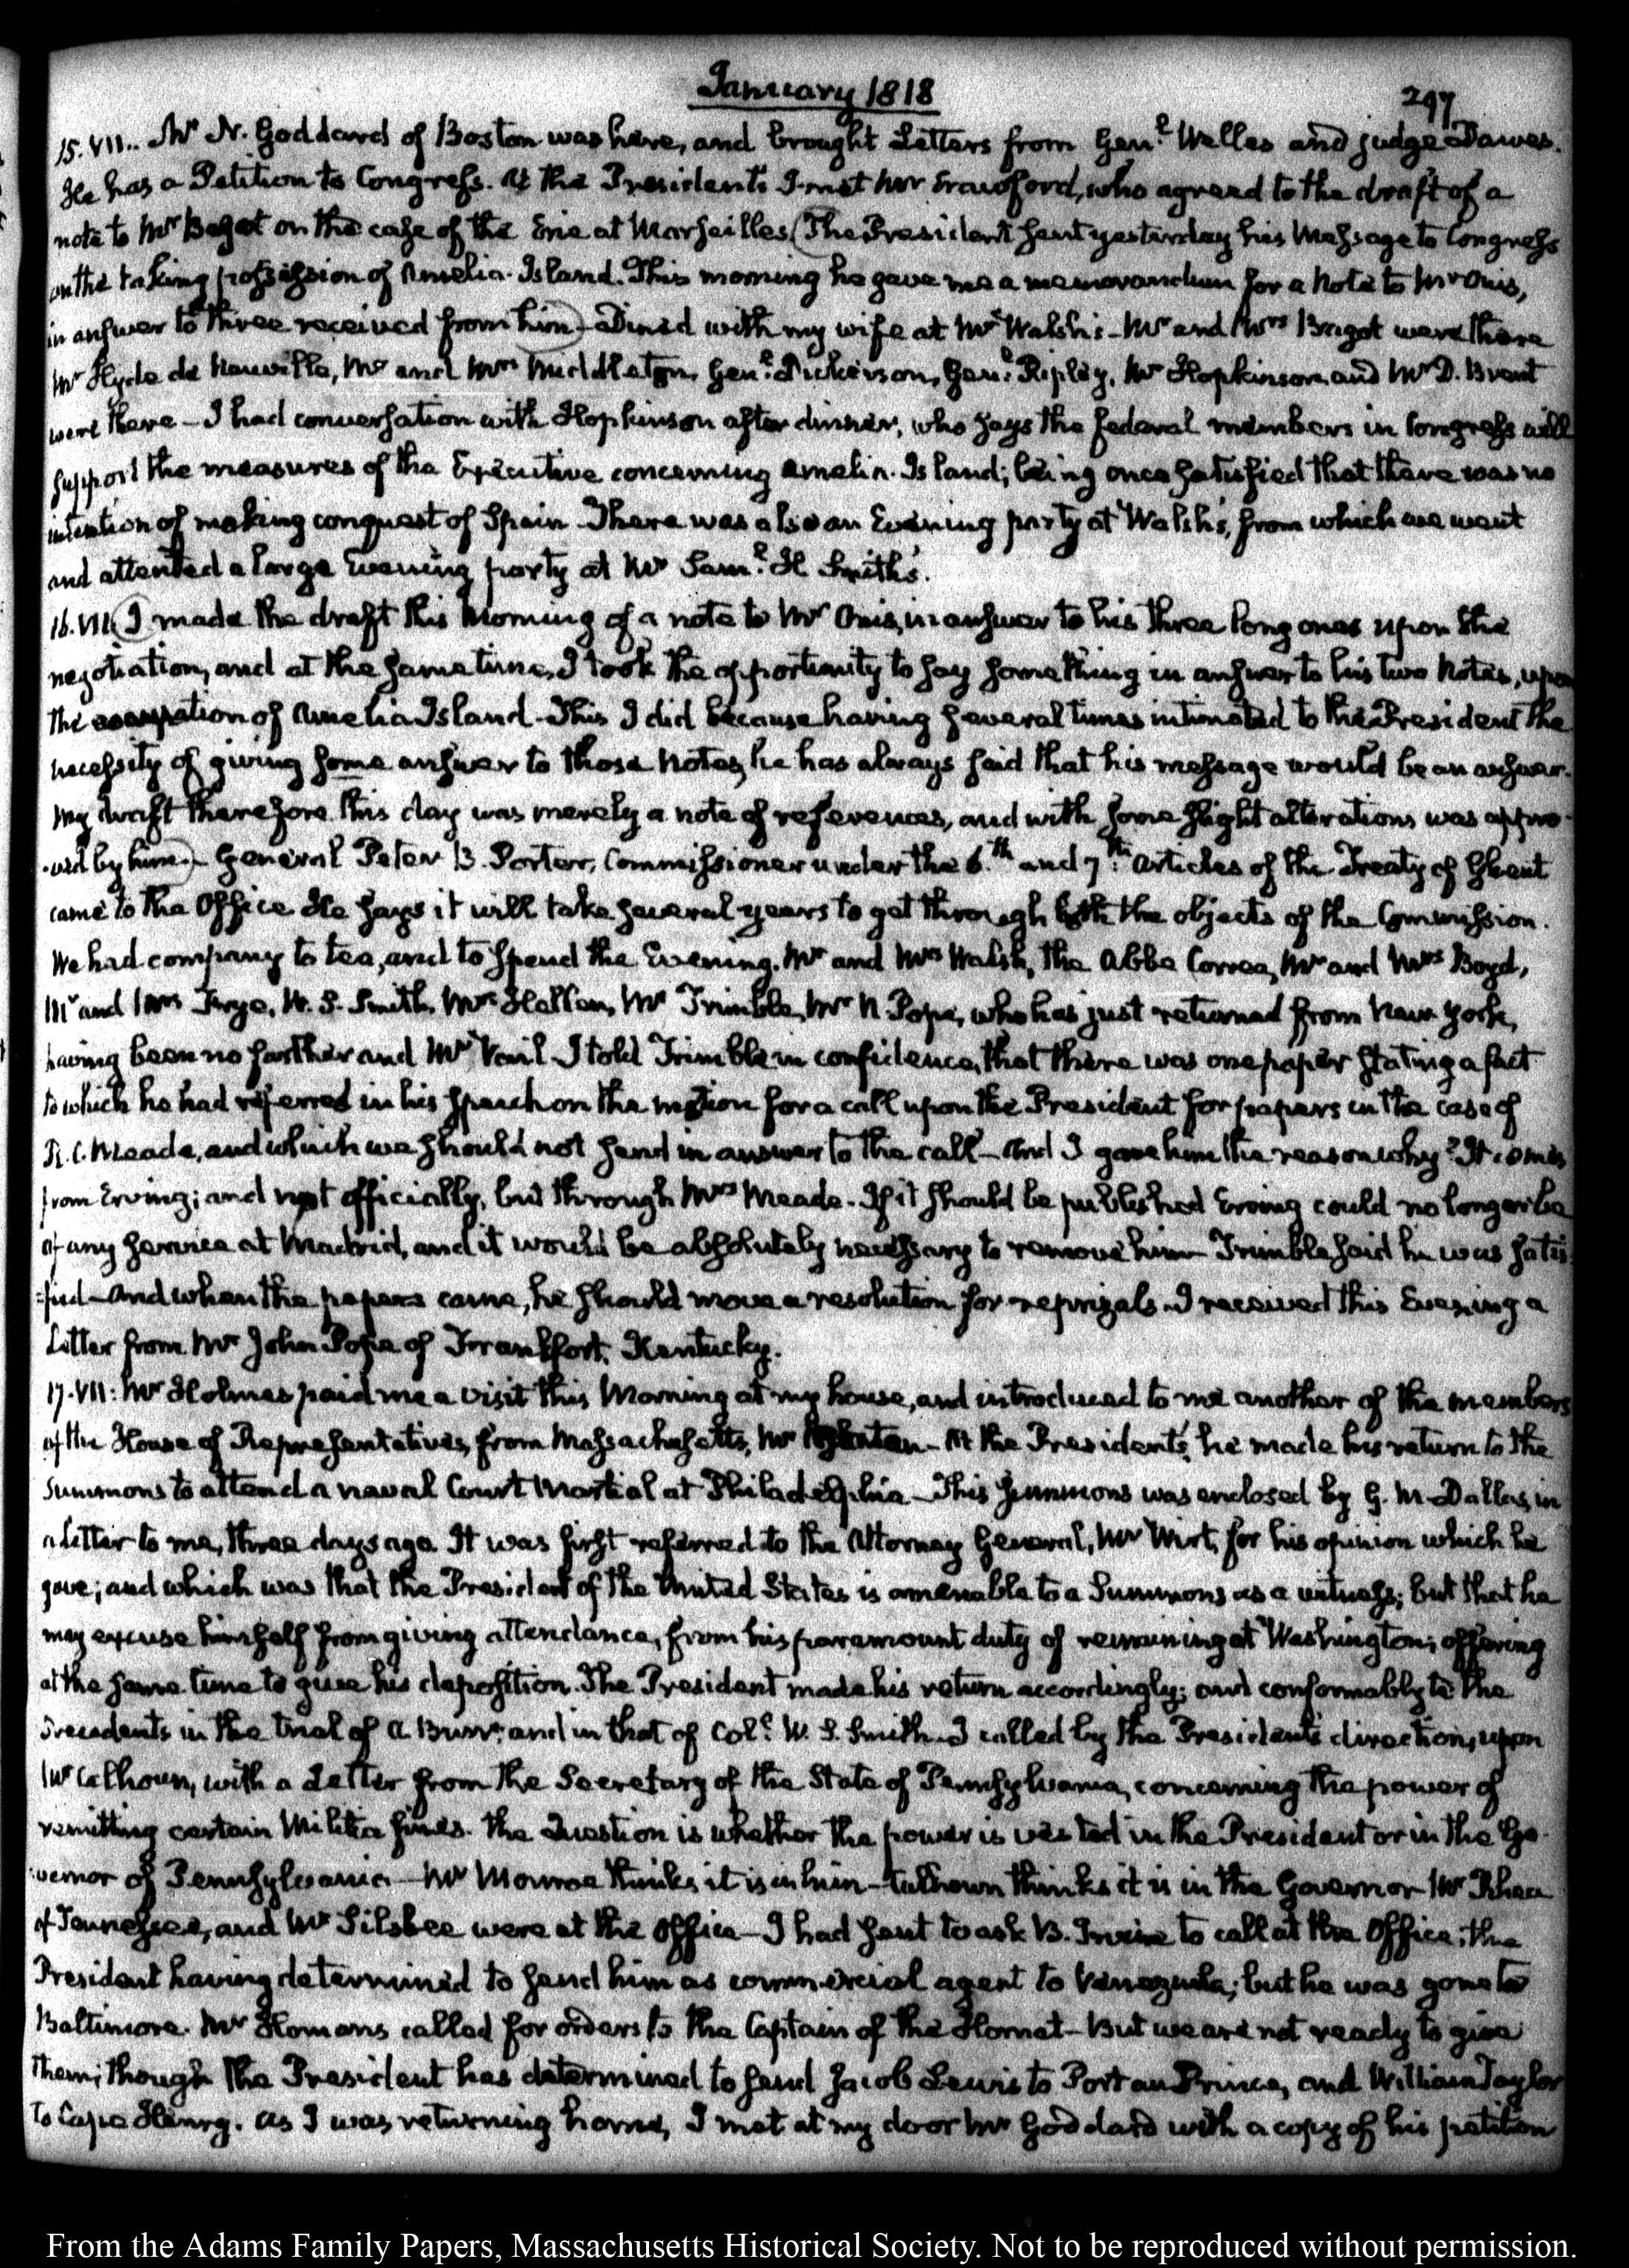 January 1818
297
15. VII.. Mr. N. Goddard of Boston was here, and brought Letters from Genl. Welles and judge Dawes.
He has a Petition to Congress. At the President's I met Mr Crawford, who agreed to the draft of a
note to Mr Bagot on the case of the Erie at Marseilles (The President sent yesterday his Message to Congress
on the taking possession of Amelia-Island. This morning he gave me a memorandum for a Note to Mr Onis,
in answer to three received from him) Dined with my wife at Mr Walsh's - Mr and Mrs Bagot were there
Mr Hyde de Neuville, Mr and Mrs Middleton, Genl. Dickerson, Genl. Ripley, Mr Hopkinson, and Mr D. Brent
were there - I had conversation with Hopkinson after dinner, who says the federal members in Congress will
support the measures of the Executive concerning Amelia-Island; being once satisfied that there was no
intention of making conquest of Spain. There was also an Evening party at Walsh's, from which we went
and attented a large Evening party at Mr Saml. H Smith's.
16. VII. (I made the draft this Morning of a note to Mr Onis, in answer to his three long ones upon the
negotiation, and at the same time, I took the opportunity to say something in answer to his two Notes, upon
the occupation of Amelia Island. This I did because having several times intimated to the President the
necessity of giving some answer to those Notes, he has always said that his message would be an answer.
My draft therefore this day was merely a note of references, and with some slight alterations was appro-
-ved by him.) General Peter B. Porter, Commissioner under the 6.th and 7.th articles of the Treaty of Ghent
came to the Office. He says it will take several years to get through both the objects of the Commission.
We had company to tea, and to spend the Evening. Mr and Mrs Walsh, the Abbe Correa, Mr and Mrs Boyd,
Mr and Mrs Frye, W. S. Smith, Mr Hellen, Mr Trimble, Mr N Pope, who has just returned from New-York,
having been no farther and Mr Vail. I told Trimble in confidence, that there was one paper stating a fact
to which he had referred in his speech on the motion for a call upon the President for papers in the case of
R. C. Meade, and which we should not send in answer to the call - And I gave him the reason why? It comes
from Erving; and not officially, but through Mrs Meade. If it should be published Erving could no longer be
of any service at Madrid, and it would be absolutely necessary to remove him. Trimble said he was satis-
=fied - And when the papers came, he should move a resolution for reprizals. I received this Evening a
Letter from Mr John Pope of Frankfort, Kentucky.
17. VII: Mr Holmes paid me a visit this Morning at my house, and introduced to me another of the members
of the House of Representatives, from Massachusetts, Mr - At the President's, he made his return to the
Summons to attend a naval Court Martial at Philadelphia - This summons was enclosed by G. M. Dallas, in
a Letter to me, three days ago. It was first referred to the Attorney General, Mr Wirt, for his opinion which he
gave; and which was that the President of the United States is amenable to a Summons as a witness; but that he
may excuse himself from giving attendance, from his paramount duty of remaining at Washington; offering
at the same time to give his deposition. The President made his return accordingly; and conformably to the
Precedents in the trial of A. Burr, and in that of Coll. W. S. Smith. I called by the President's direction, upon
Mr Calhoun, with a Letter from the Secretary of the State of Pennsylvania, concerning the power of
remitting certain Militia fines. The Question is whether the power is vested in the President or in the Go-
-vernor of Pennsylvania - Mr Monroe thinks it is in him - Calhoun thinks it is in the Governor. Mr Rhea
of Tennessee, and Mr Silsbee were at the Office - I had sent to ask B. Irvine to call at the Office; the
President having determined to send him as commercial agent to Venezuela; but he was gone to
Baltimore. Mr Homans called for orders to the Captain of the Hornet - But we are not ready to give
them; though the President has determined to send Jacob Lewis to Port au Prince, and William Taylor
to Cape Henry. As I was returning home, I met at my door Mr Goddard with a copy of his petition
From the Adams Family Papers, Massachusetts Historical Society. Not to be reproduced without permission.